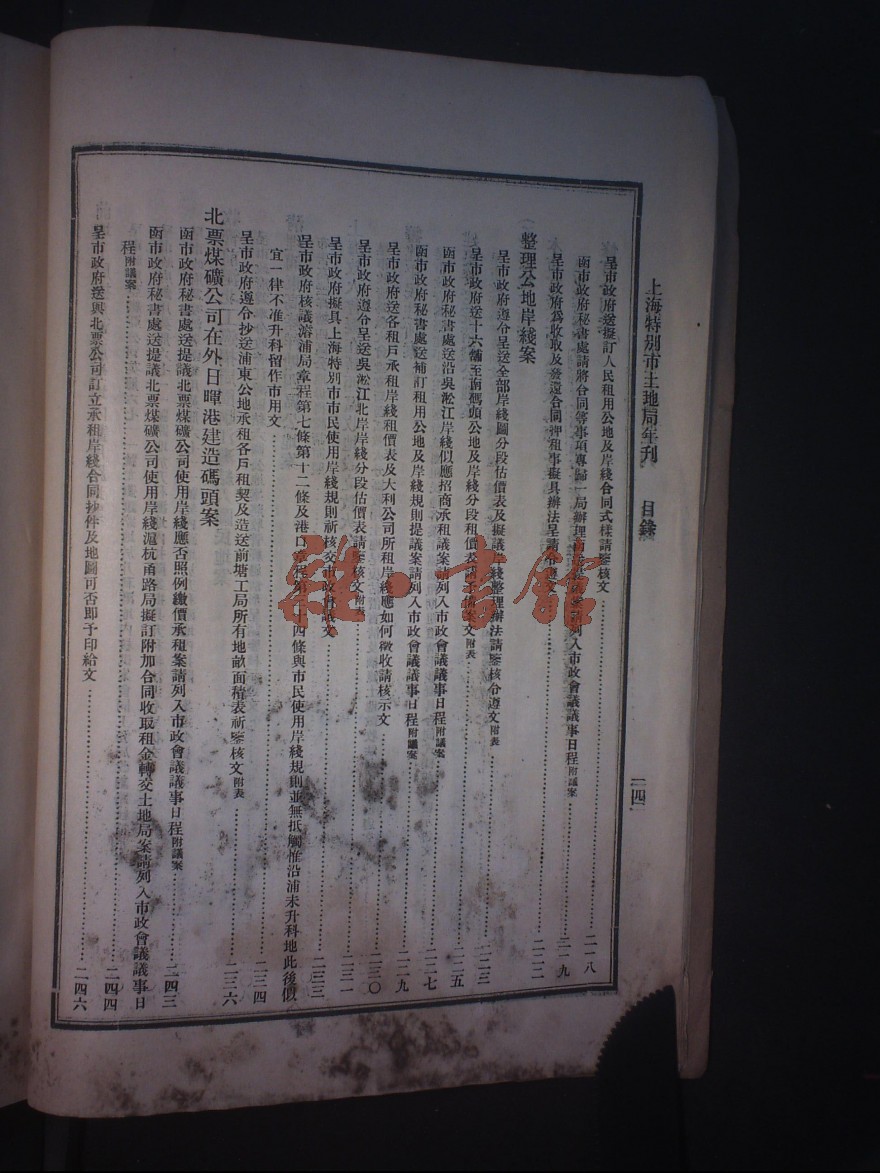 上海特別市土地局年刊　目錄　二四
呈市政府送擬訂人民租用公地及岸綫合同式樣請鑒核文……二一八
函市政府秘書處請將合同等事項專歸一局辦理列入市政會議議事日程附議案……二一九
呈市政府爲收取及發還合同押租事擬具辦法呈請令遵文……二二二
整理公地岸綫案
呈市政府遵令呈送全部岸綫圖分段估價表及擬議岸綫整理辦法請鑒核令遵文附表……二二三
呈市政府送十六舖至南碼頭公地及岸綫分段租價表請予備案文附表……二二五
函市政府秘書處送沿吳淞江岸綫似應招商承租議案請列入市政會議議事日程附議案……二二七
函市政府秘書處送補訂租用公地及岸綫規則提議案請列入市政會議議事日程附議案……二二九
呈市政府送各租戶承租岸綫租價表及大利公司所租岸綫應如何徵收請核示文……二三〇
呈市政府遵令呈送吳淞江北岸岸綫分段估價表請鑒核文附表……二三一
呈市政府擬具上海特別市市民使用岸綫規則祈核交市政會議文……二三三
呈市政府核議濬浦局章程第七條第十二條及港口章程第二十四條與市民使用岸綫規則並無抵觸惟沿浦未升科地此後似
宜一律不准升科留作市用文……二三四
呈市政府遵令抄送浦東公地承租各戶租契及造送前塘工局所有地畝面積表祈鑒核文附表……二三六
北票煤礦公司在外日暉港建造碼頭案
函市政府秘書處送提議北票煤礦公司使用岸綫應否照例繳價承租案請列入市政會議議事日程附議案……二四三
函市政府秘書處送提議北票煤礦公司使用岸綫滬杭甬路局擬訂附加合同收取租金轉交土地局案請列入市政會議議事日
程附議案……二四四
呈市政府送與北票公司訂立承租岸綫合同抄件及地圖可否即予印給文……二四六